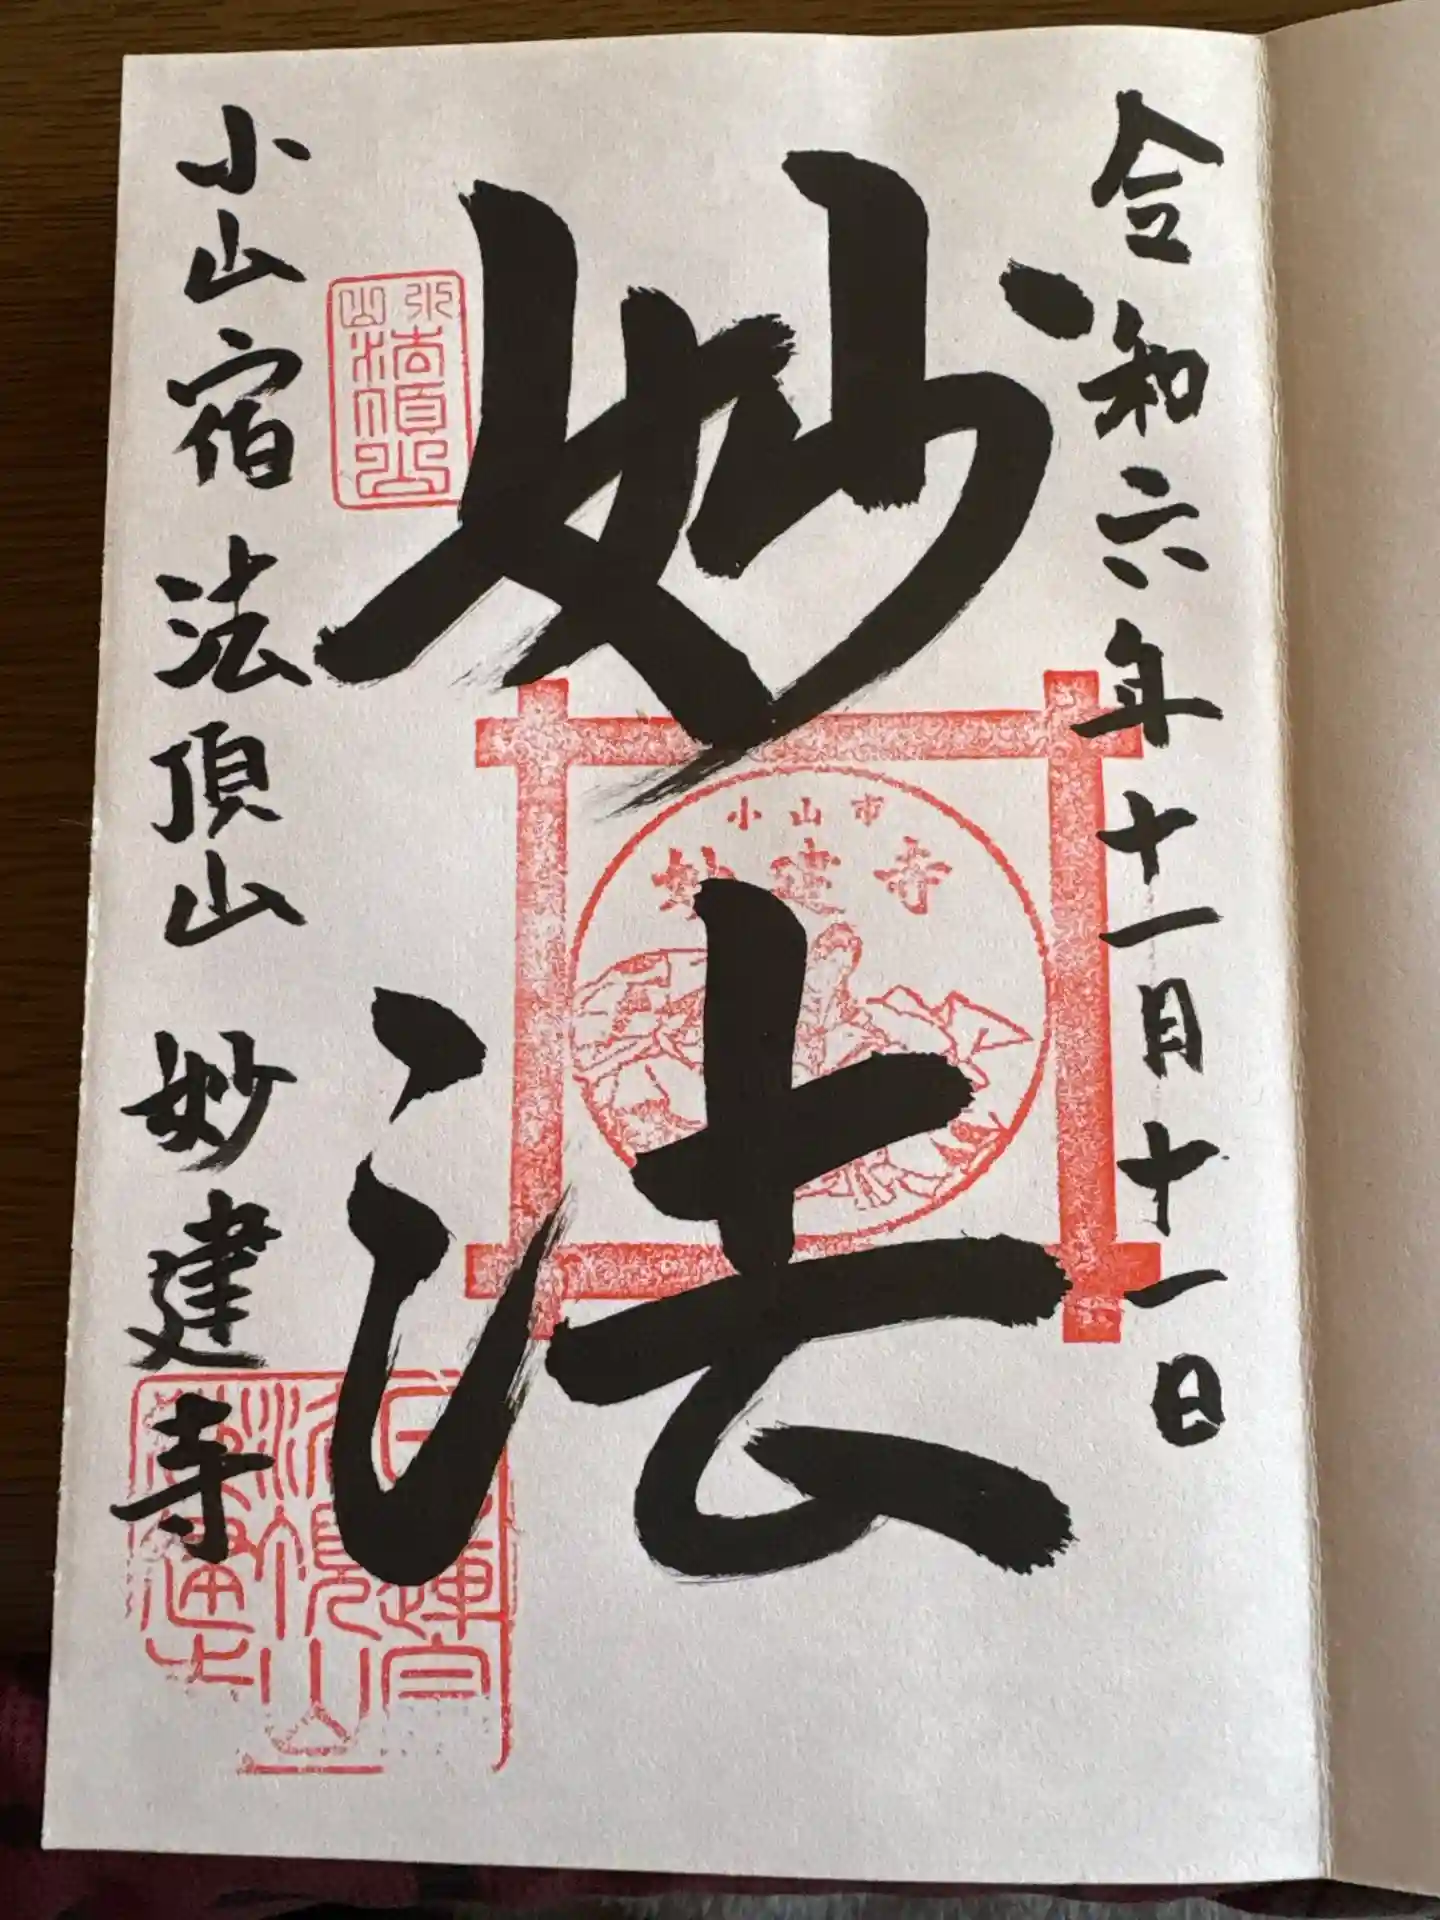 令和六年十一月十一日
妙法
小山市
妙建寺
小山
法頂山
小山宿 法頂山 妙建寺